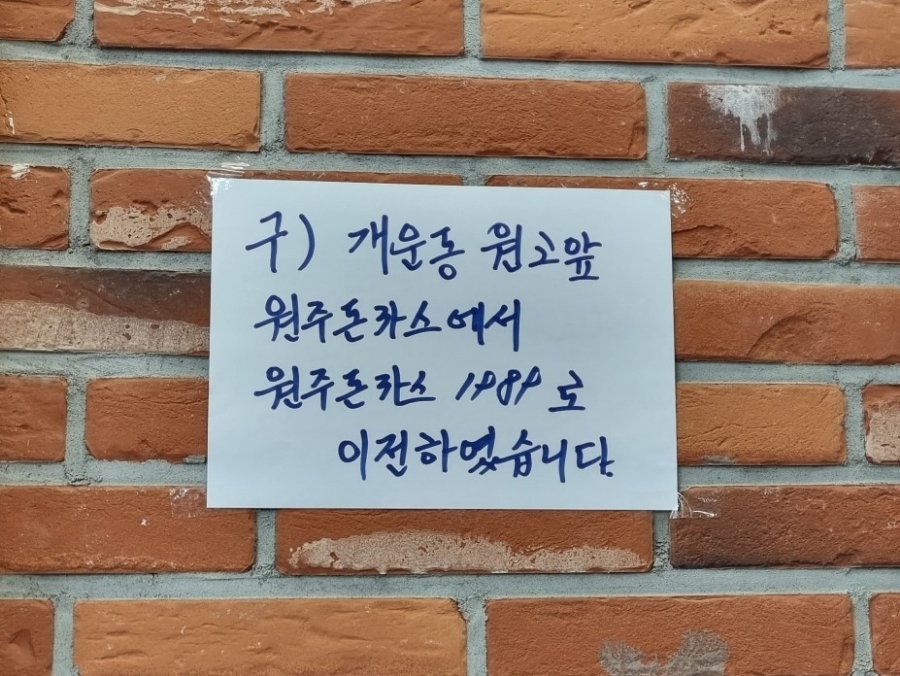 구) 개운동 원고앞
원주돈까스에서
원주돈까스 1989로
이전하였습니다.